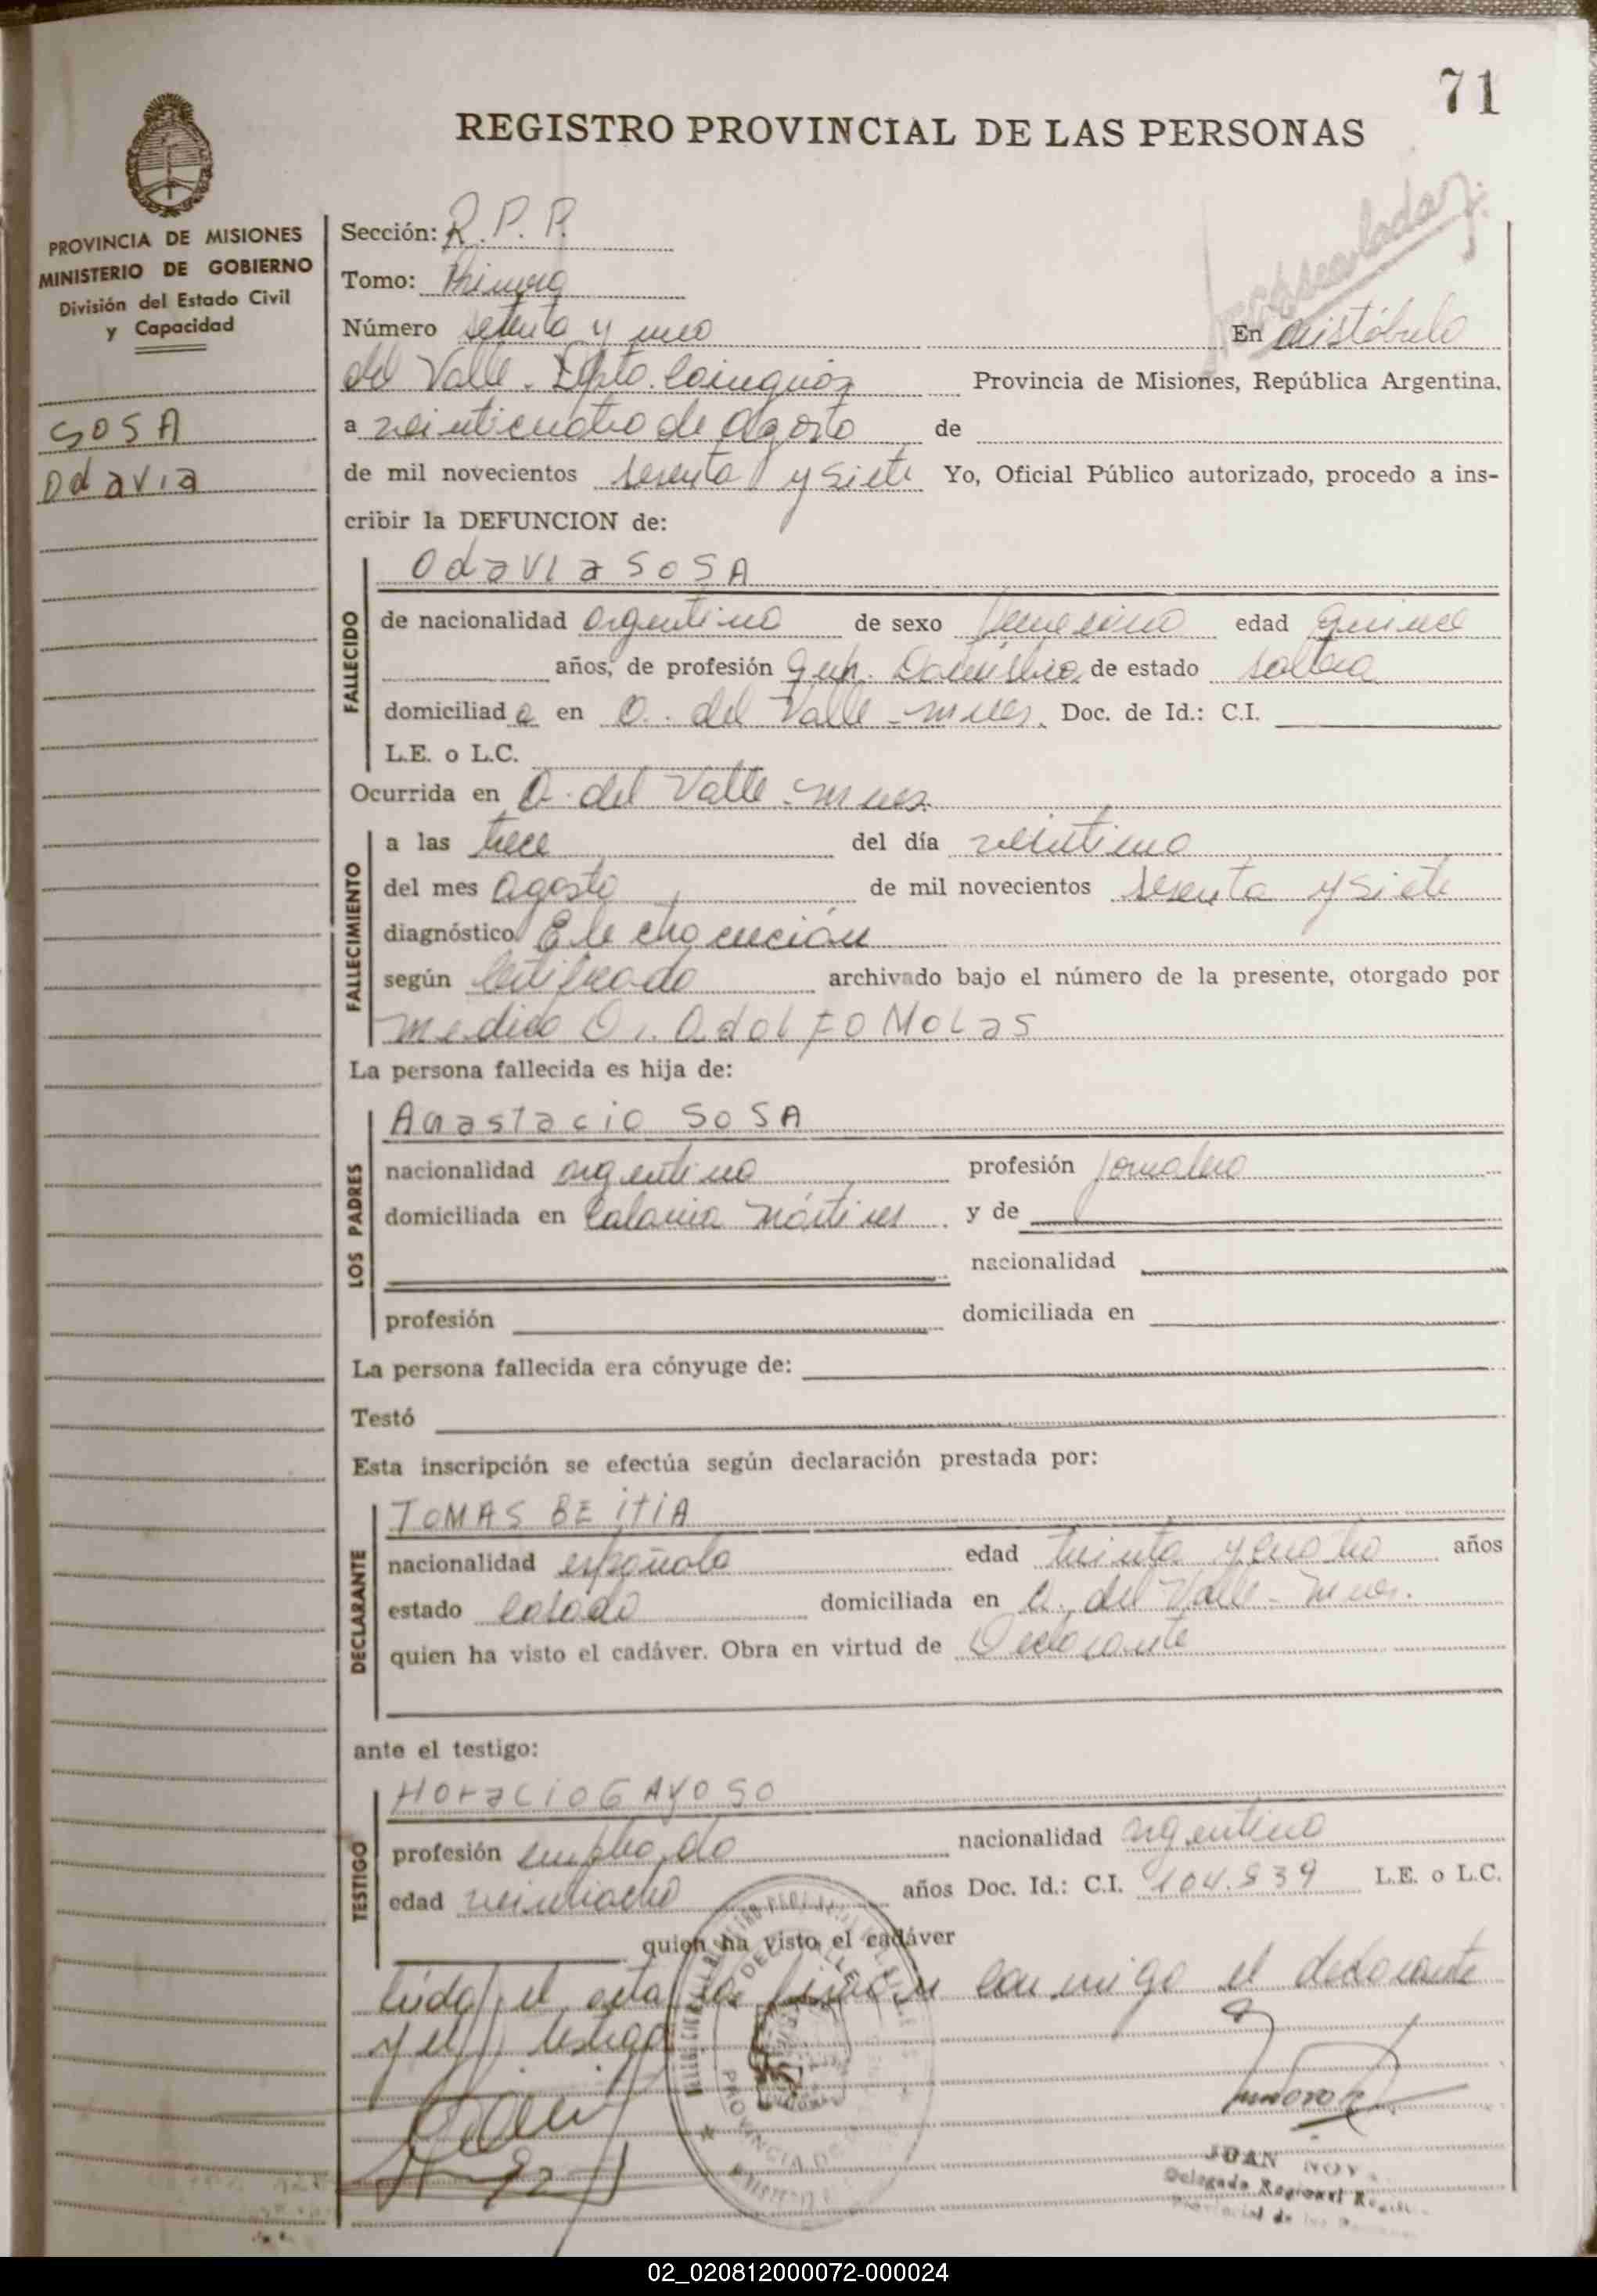 71
REGISTRO PROVINCIAL DE LAS PERSONAS
PROVINCIA DE MISIONES
MINISTERIO DE GOBIERNO
División del Estado Civil
y Capacidad
SOSA
Odavia
Sección: R.P.P.
Tomo: Primero
Número setenta y uno En Aristóbulo
del Valle. Dpto. Cainguás Provincia de Misiones, República Argentina,
a veinticuatro de Agosto de
de mil novecientos sesenta y siete Yo, Oficial Público autorizado, procedo a ins-
cribir la DEFUNCION de:
FALLECIDO
Odavia SOSA
de nacionalidad argentina de sexo femenino edad quince
años, de profesión Queh. Doméstico de estado soltera
domiciliada en A. del Valle - Mnes. Doc. de Id.: C.I.
L.E. o L.C.
Ocurrida en A. del Valle - Mnes.
FALLECIMIENTO
a las trece del día veintiuno
del mes Agosto de mil novecientos sesenta y siete
diagnóstico Electrocución
según Certificado archivado bajo el número de la presente, otorgado por
medico Dr. AdolFO MOLas
La persona fallecida es hija de:
LOS PADRES
Anastacio SOSA
nacionalidad argentina profesión Jornalero
domiciliada en Colonia Mártires y de
nacionalidad
profesión domiciliada en
La persona fallecida era cónyuge de:
Testó
Esta inscripción se efectúa según declaración prestada por:
DECLARANTE
TOMAS BEITIA
nacionalidad española edad treinta y cuatro años
estado Casado domiciliada en A. del Valle - Mnes.
quien ha visto el cadáver. Obra en virtud de Declarante
ante el testigo:
TESTIGO
Horacio GAYOSO
profesión empleado nacionalidad argentina
edad veintiocho años Doc. Id.: C.I. 104.839 L.E. o L.C.
quien ha visto el cadáver
Leída el acta la firman conmigo el declarante
y el testigo
JUAN
Delegado Regional
02_020812000072-000024